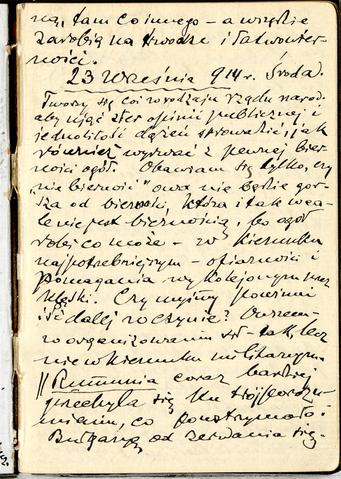 ną, tam co innego – a wszędzie
zarobią na trwodze i łatwowier-
ności.
23 Września 914 r. Środa.
Tworzy się coś w rodzaju rządu narod.
aby ująć ster opinii publicznej i
jednolitość dążeń sprowadzić, jak
również wyrwać z pewnej bier-
ności ogół. Obawiam się tylko, czy
„nie bierność" owa nie będzie gor-
sza od bierności, która i tak wca-
le nie jest biernością, bo ogół
robi co może – w kierunku
najpotrzebniejszym – ofiarności i
pomagania wykolejonym przez
klęski. Czy myśmy powinni
iść dalej w czynie? Owszem –
w organizowaniu – tak, lecz
nie w kierunku militarnym.
// Rumunia coraz bardziej
przechyla się ku trójporozu-
mieniu, co powstrzymało
Bułgaryę od zerwania się.